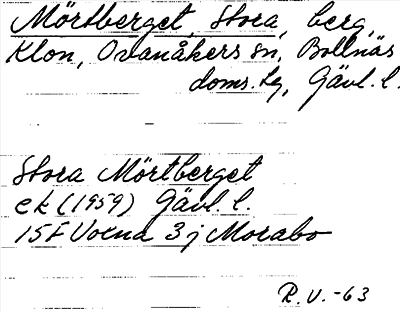 Mörtberget, Stora, berg,
Klon, Ovanåkers sn, Bollnäs
doms. lg, Gävl. l.
Stora Mörtberget
ek (1959) Gävl. l.
15F Voxna 3 j Morabo
R.V. -63